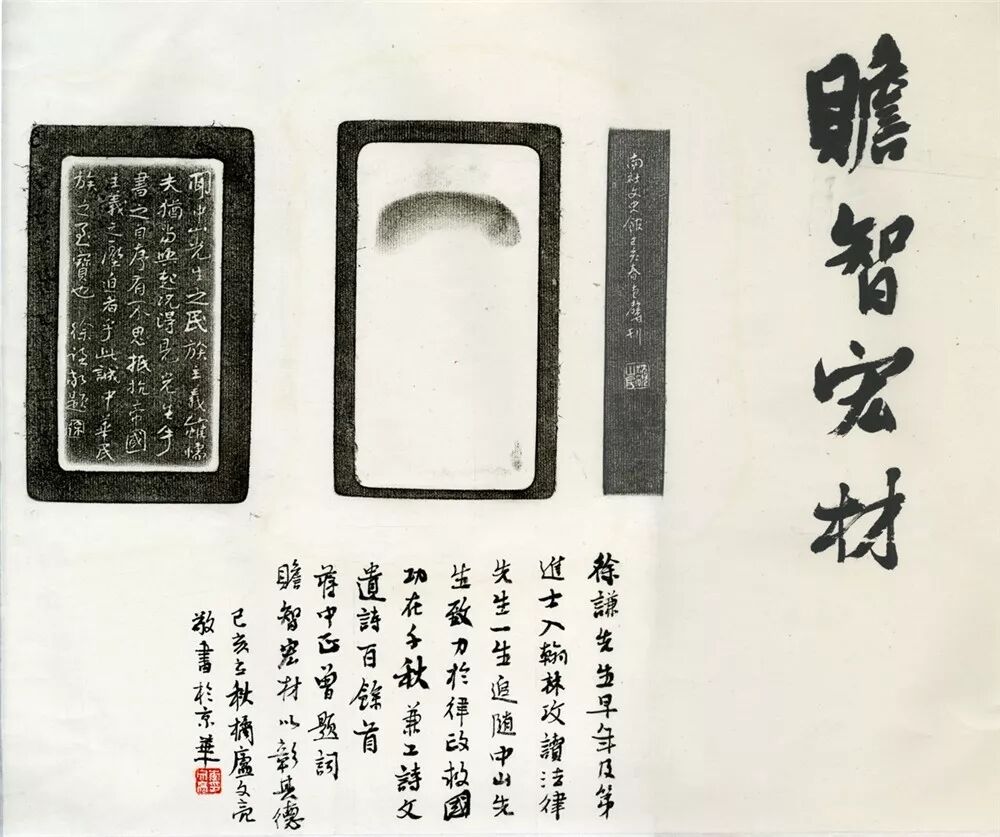 贍智宏材
南社文史館己亥春刊
聞中山先生之民族主義雖懦
夫猶當興起況得見先生手
書之自序有不思抵抗帝國
主義之壓迫者乎此誠中華民
族之至寶也 徐謙敬題 徐
徐謙先生早年及第
進士入翰林攻讀法律
先生一生追隨中山先
生致力於律政救國
功在千秋兼工詩文
遺詩百餘首
蔣中正曾題詞
贍智宏材以彰其德
己亥立秋橘廬文亮
敬書於京華